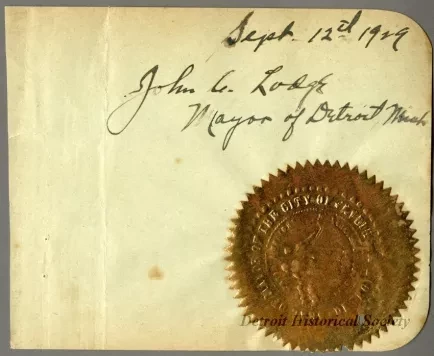 Sept. 12th 1929
John C. Lodge
Mayor of Detroit, Mich
OF THE CITY OF
Detroit Historical Society